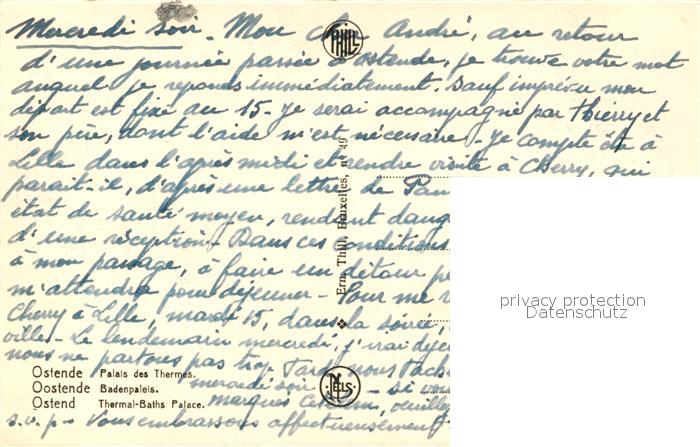 Mercredi soir - Mon cher André, au retour
d'une journée passée à Ostende, je trouve votre mot
auquel je réponds immédiatement. Sauf imprévu mon
départ est fixé au 15 - Je serai accompagné par Thierry et
son père, dont l'aide m'est nécessaire - Je compte être à
Lille dans l'après midi et rendre visite à Cherry, qui
parait-il, d'après une lettre de
état de santé moyen, rendant
d'une réception - Dans ces conditions
à mon passage, à faire un détour
m'attendre pour déjeuner - Pour me
Cherry à Lille, mardi 15, dans la soirée,
ville - Le lendemain mercredi, j'irai
nous ne partons pas trop tard nous
mercredi soir - si vous
s.v.p - Vous embrassons affectueusement
PHILL
Ern. Thill, Bruxelles, nº 49
Ostende Palais des Thermes.
Oostende Badenpaleis.
Ostend Thermal-Baths Palace.
NELS
privacy protection
Datenschutz